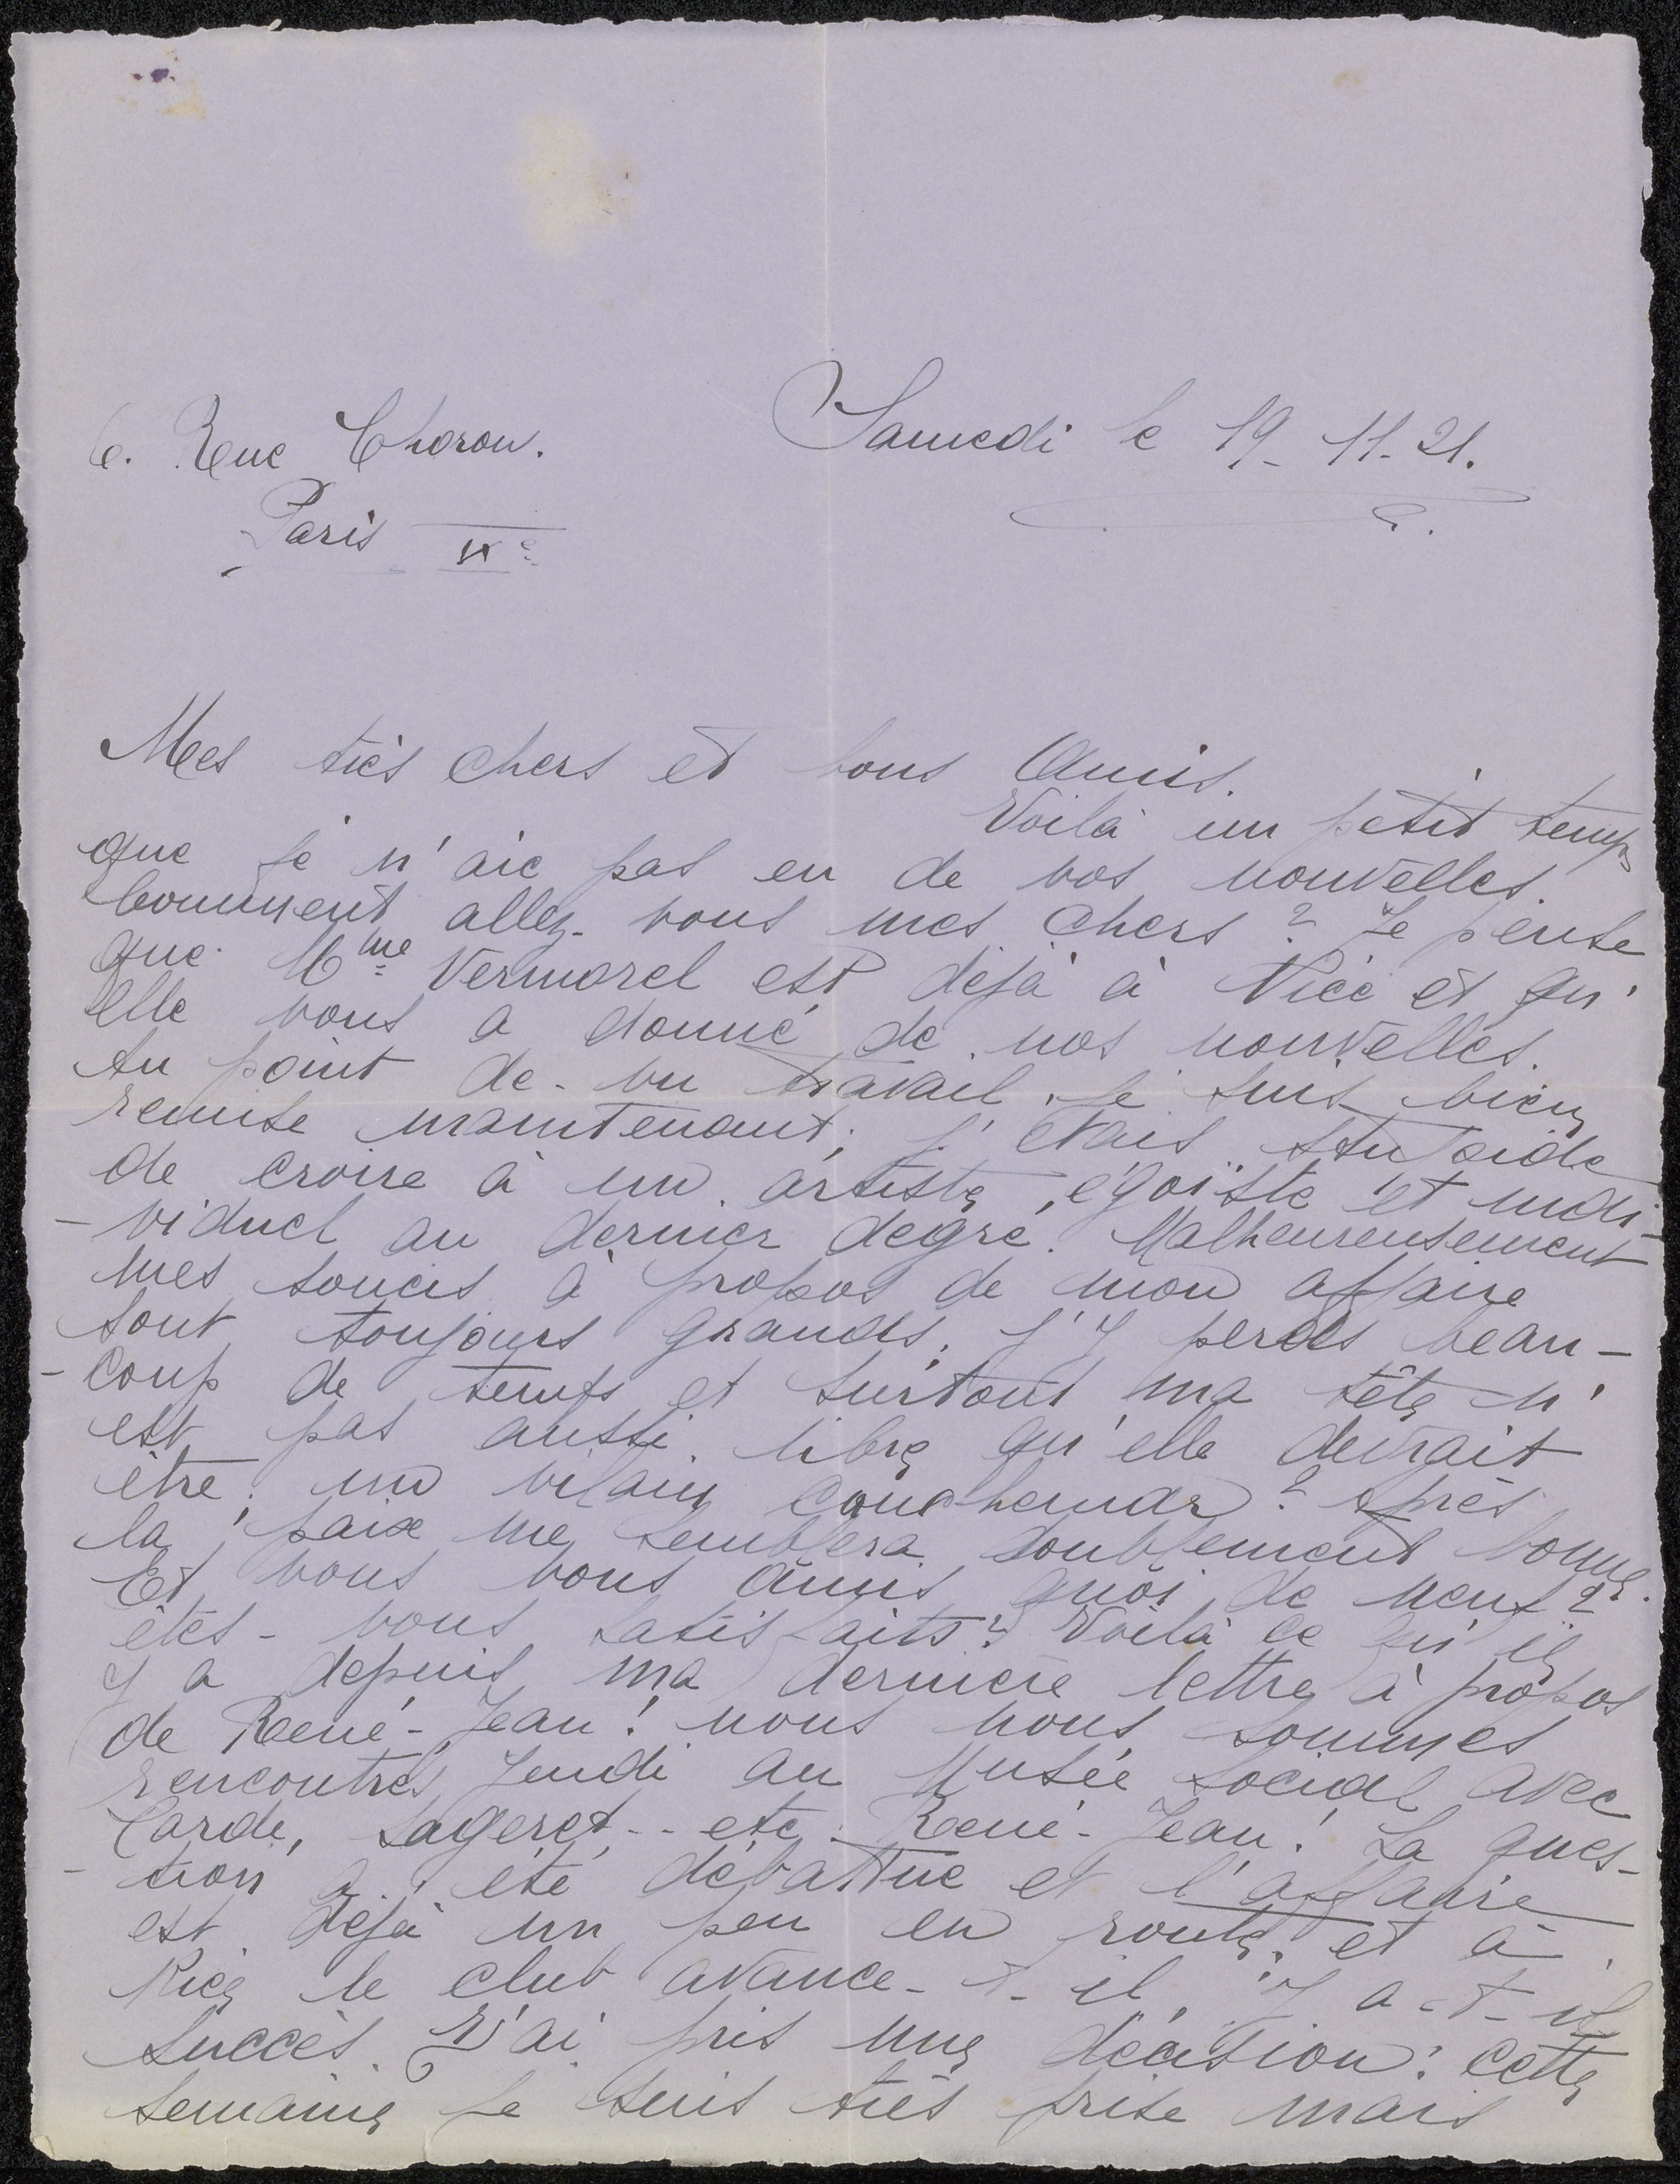 6. Rue Choron.
Samedi le 19-11-21.
Paris IXe
Mes très chers et bons Amis.
Voilà un petit temps
que je n'aie pas eu de vos nouvelles.
Comment allez-vous mes chers? Je pense
que Mme Vermorel est déjà à Nice et qu'
elle vous a donné de nos nouvelles.
Au point de-vu travail, je suis bien
remise maintenant; j'étais stupide
de croire à un artiste, égoïste et indi-
-viduel au dernier degré. Malheureusement
mes soucis à propos de mon affaire
sont toujours grands. J'y perds beau-
-coup de temps et surtout ma tête n'
est pas aussi libre qu'elle devrait
être; un vilain cauchemar? Après
la paix me semblera doublement bonne.
Et vous bons amis quoi de neuf?
êtes-vous satisfaits? Voilà ce qu'il
y a depuis ma dernière lettre à propos
de René-Jean! nous nous sommes
rencontrés Jeudi au Musée Social avec
Carde, Sageret-- etc. René-Jean! La ques-
-tion a été débattue et l'affaire
est déjà un peu en route. et à
Nice le club avance-t-il, y a-t-il
succès. J'ai pris une décision: cette
semaine je suis très prise mais